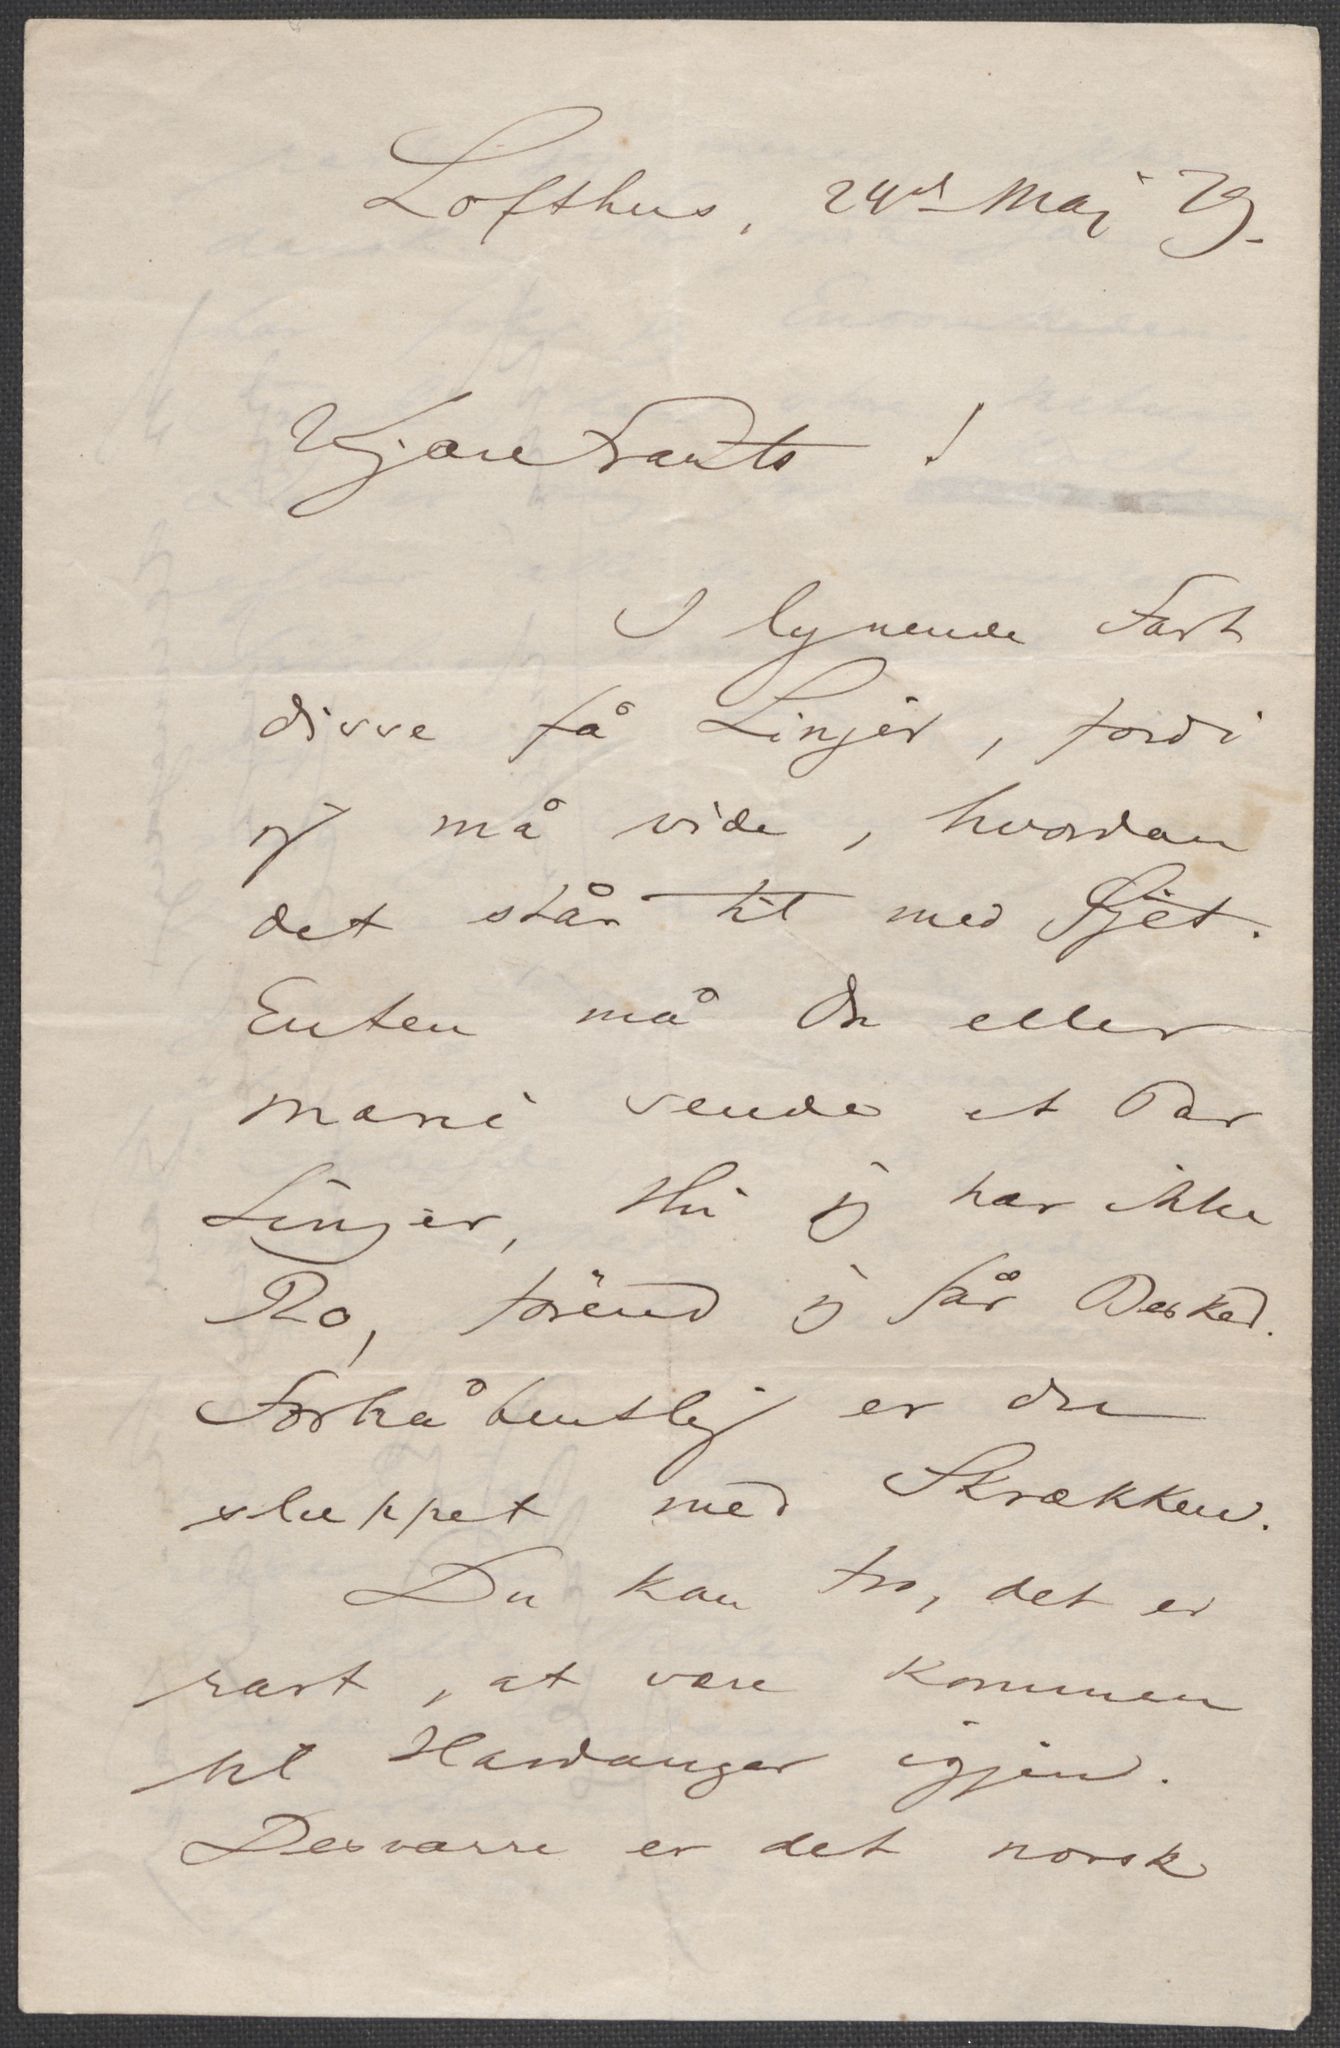 Lofthus, 24de Maj 79.
Kjære Frants!
I lynende Fart
disse få Linjer, fordi
jeg må vide, hvordan
det står til med Øjet.
Enten må Du eller
Marie sende et Par
Linjer, thi jeg har ikke
Ro, förend jeg får Besked.
Forhåbentlig er Du
sluppet med Skrækken.
Du kan tro, det er
rart, at være kommen
til Hardanger igjen.
Desværre er det norsk